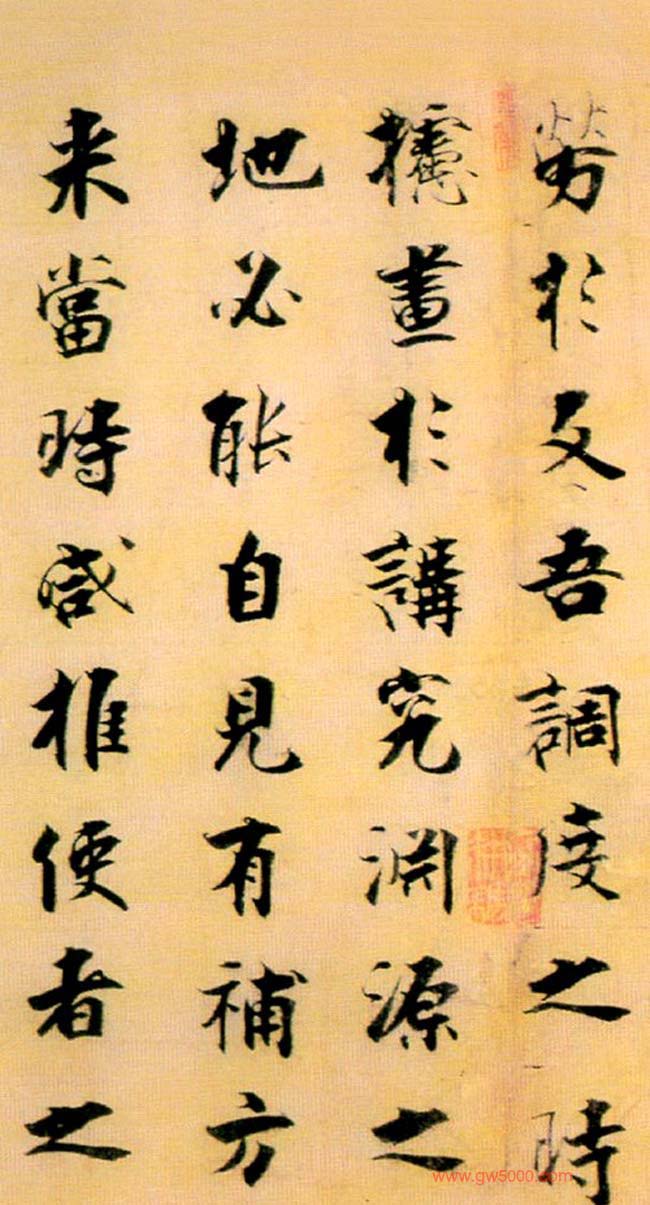 勞於吾調度之時
攄畫於講究淵源之
地必能自見有補方
来當時咸推使者之
www.gw5000.com